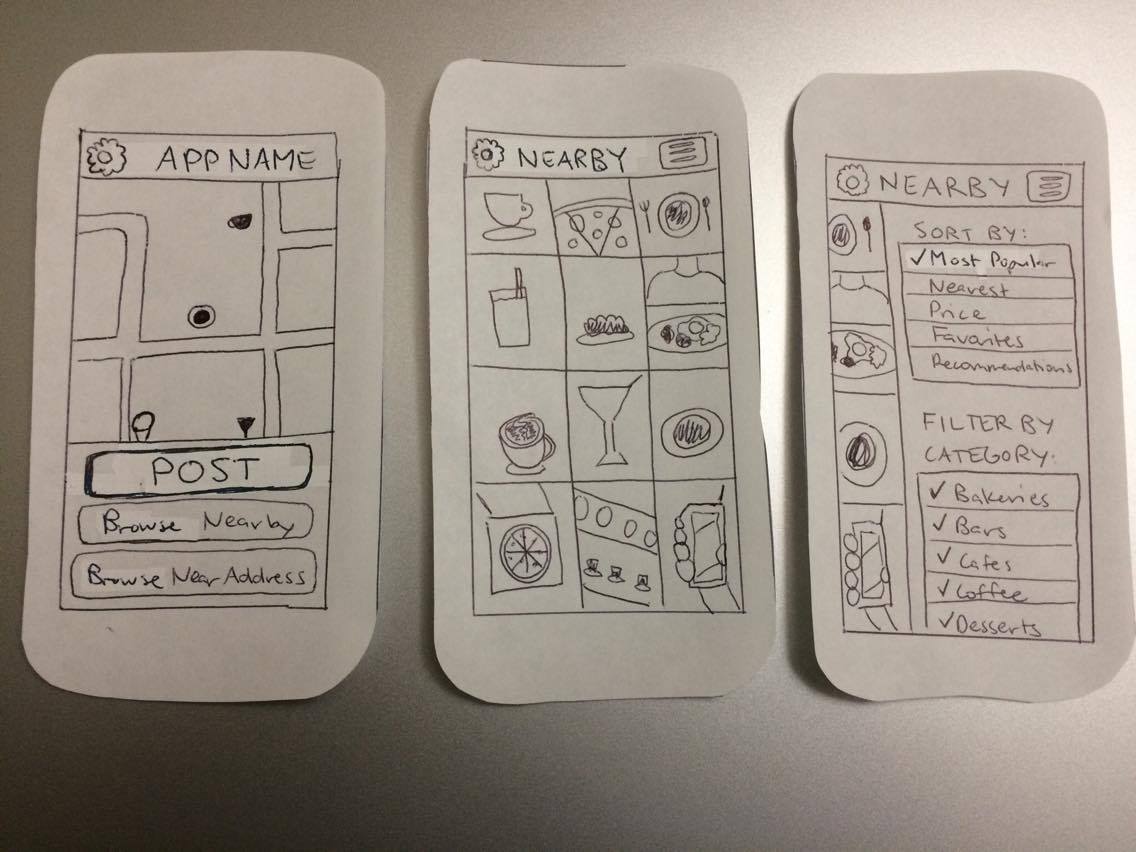 APP NAME
POST
Browse Nearby
Browse Near Address
NEARBY
NEARBY
SORT BY:
✓Most Popular
Nearest
Price
Favorites
Recommendations
FILTER BY
CATEGORY:
✓ Bakeries
✓ Bars
✓ Cafes
✓ Coffee
✓ Desserts